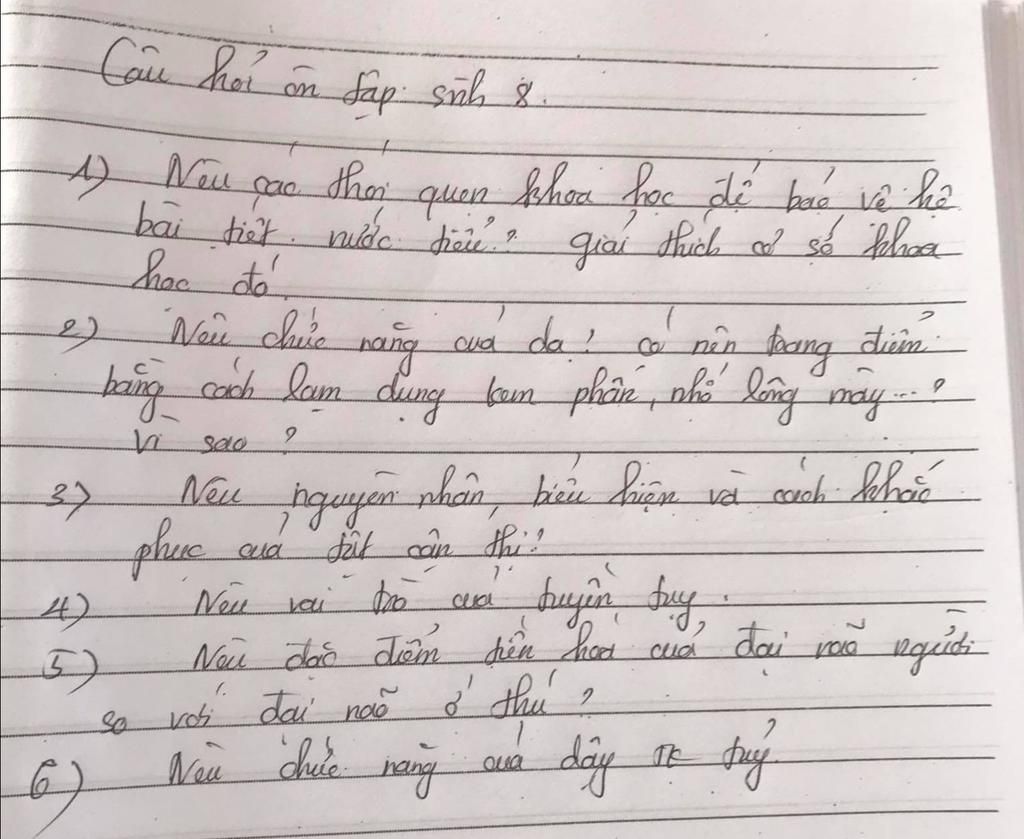 Câu hỏi ôn tập sinh 8.
1) Nêu các thói quen khoa học để bảo vệ hệ
bài tiết nước tiểu? giải thích cơ sở khoa
học đó.
2) Nêu chức năng của da? có nên trang điểm
bằng cách lạm dụng kem phấn, nhổ lông mày...?
Vì sao?
3) Nêu nguyên nhân, biểu hiện và cách khắc
phục của tật cận thị?
4) Nêu vai trò của tuyến tụy.
5) Nêu đặc điểm tiến hoá của đại não người
so với đại não ở thú?
6) Nêu chức năng của dây TK tuỷ